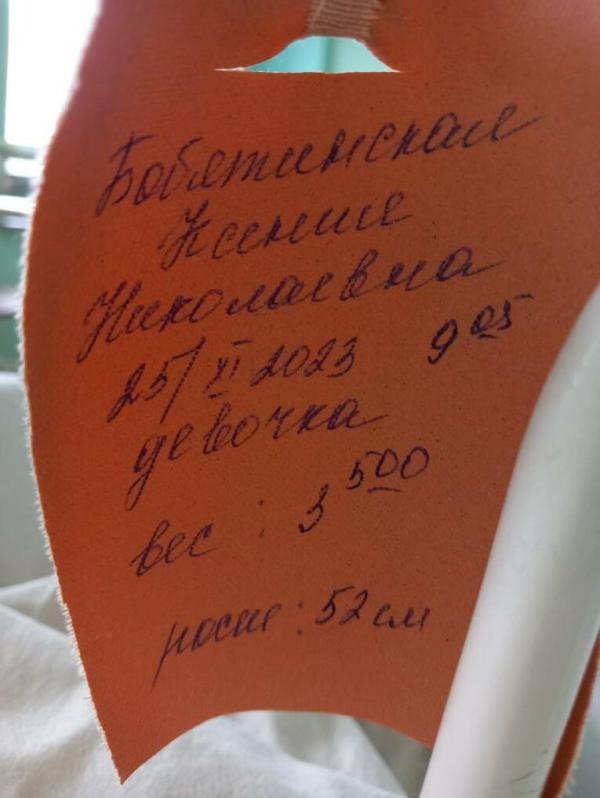 Бобятинская
Ксения
Николаевна
25/XI 2023 9 05
девочка
вес : 3 500
рост : 52 см